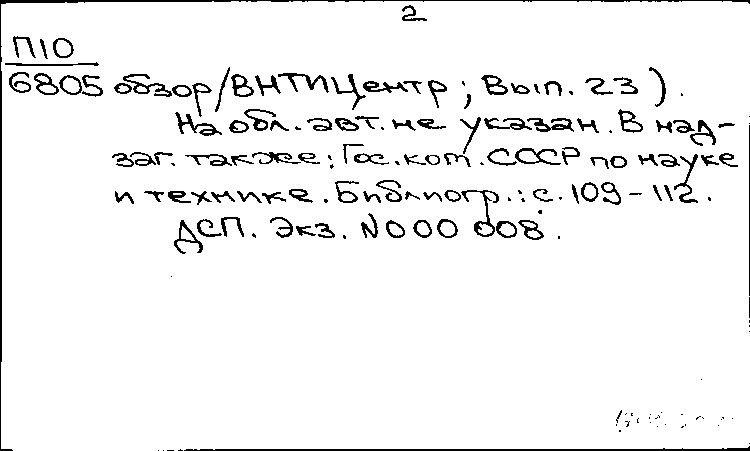 2
П10
6805 обзор/ВНТИЦентр; Вып. 23).
На обл. авт. не указан. В над-
заг. также: Гос. ком. СССР по науке
и технике. Библиогр.: с. 109-112.
ДСП. Экз. N000 008.